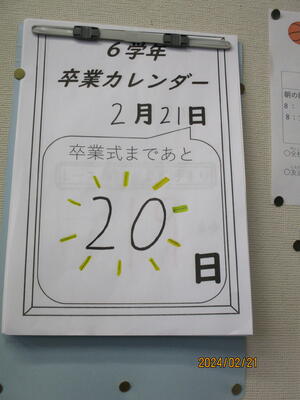 6学年
卒業カレンダー
2月21日
卒業式まであと
20
日
朝の
8:
8:
2024/02/21